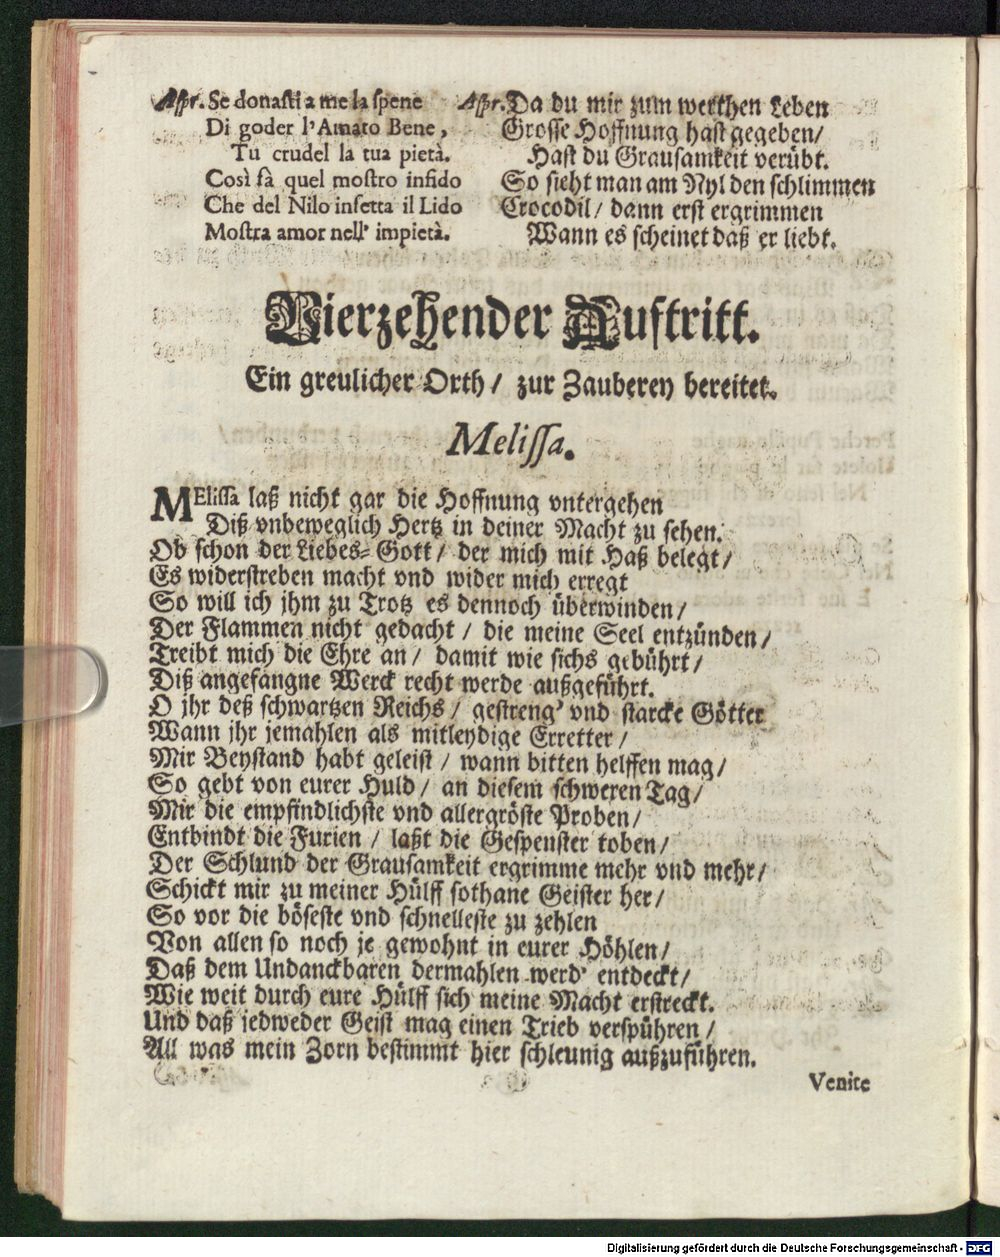 Aspr. Se donasti a me la spene
Di goder l'Amato Bene,
Tu crudel la tua pietà.
Così fà quel mostro infido
Che del Nilo infetta il Lido
Mostra amor nell' impietà.
Aspr. Da du mir zum werthen Leben
Grosse Hoffnung hast gegeben/
Hast du Grausamkeit verübt.
So sieht man am Nyl den schlimmen
Crocodil/ dann erst ergrimmen
Wann es scheinet daß er liebt.
Vierzehender Auftritt.
Ein greulicher Orth/ zur Zauberey bereitet.
Melissa.
MElissa laß nicht gar die Hoffnung vntergehen
Diß vnbeweglich Hertz in deiner Macht zu sehen.
Ob schon der Liebes-Gott/ der mich mit Haß belegt/
Es widerstreben macht vnd wider mich erregt
So will ich jhm zu Trotz es dennoch überwinden/
Der Flammen nicht gedacht/ die meine Seel entzünden/
Treibt mich die Ehre an/ damit wie sichs gebührt/
Diß angefangne Werck recht werde außgeführt.
O jhr deß schwartzen Reichs/ gestreng' vnd starcke Götter
Wann jhr jemahlen als mitleydige Erretter/
Mir Beystand habt geleist/ wann bitten helffen mag/
So gebt von eurer Huld/ an diesem schweren Tag/
Mir die empfindlichste vnd allergröste Proben/
Entbindt die Furien/ laßt die Gespenster toben/
Der Schlund der Grausamkeit ergrimme mehr vnd mehr/
Schickt mir zu meiner Hülff sothane Geister her/
So vor die böseste vnd schnelleste zu zehlen
Von allen so noch je gewohnt in eurer Höhlen/
Daß dem Undanckbaren dermahlen werd' entdeckt/
Wie weit durch eure Hülff sich meine Macht erstreckt.
Und daß jedweder Geist mag einen Trieb verspühren/
All was mein Zorn bestimmt hier schleunig außzuführen.
Venite
Digitalisierung gefördert durch die Deutsche Forschungsgemeinschaft - DFG